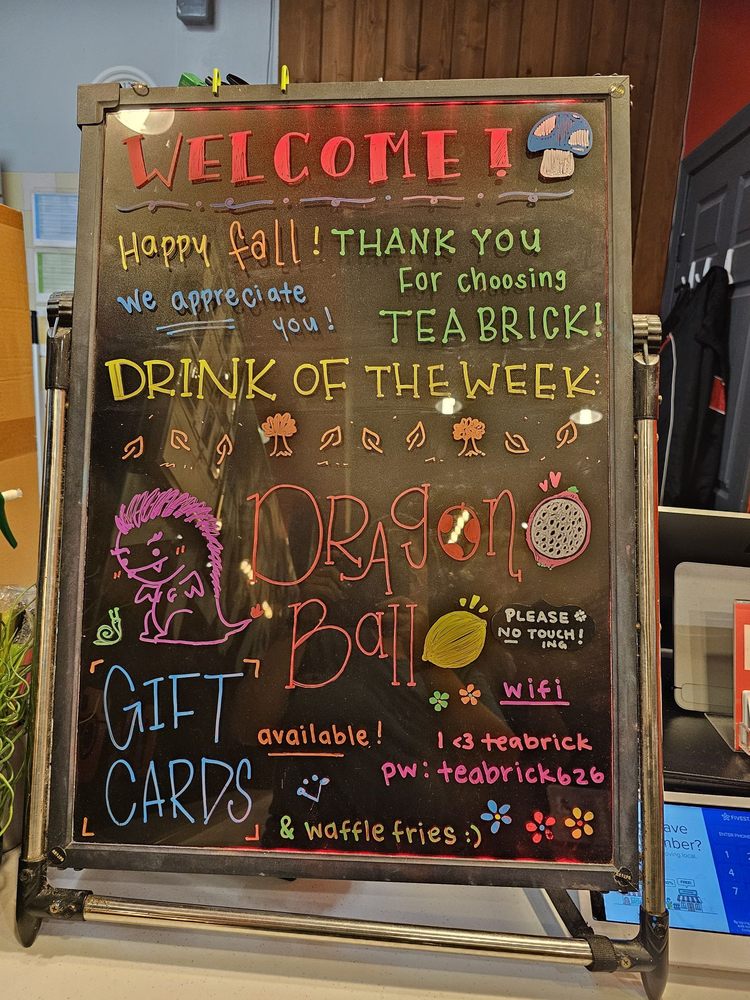 WELCOME!
Happy fall! THANK YOU
For choosing
We appreciate
you!
TEA BRICK!
DRINK OF THE WEEK:
DRAgon
Ball
PLEASE
NO TOUCH!
ING
GIFT
CARDS
available!
wifi
1 <3 teabrick
pw: teabrick626
& waffle fries :)
FIVEST
ENTER PHONE
1
4
7